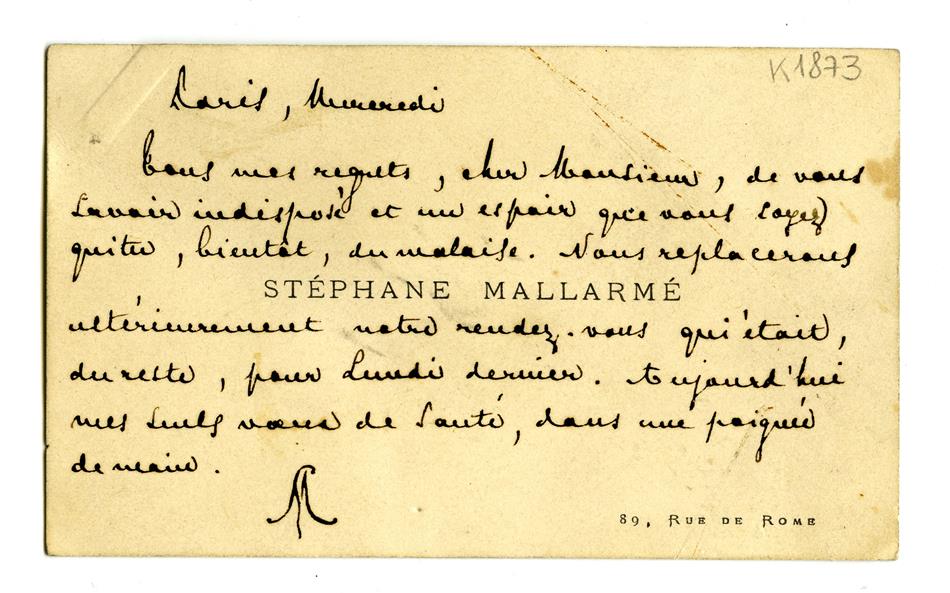 K1873
Paris, Mercredi
Tous mes regrets, cher Monsieur, de vous
savoir indisposé et un espoir que vous soyez
quitte, bientôt, du malaise. Nous replacerons
STÉPHANE MALLARMÉ
ultérieurement notre rendez-vous qui était,
du reste, pour Lundi dernier. Aujourd'hui
mes seuls vœux de santé, dans une poignée
de main.
SM
89, RUE DE ROME